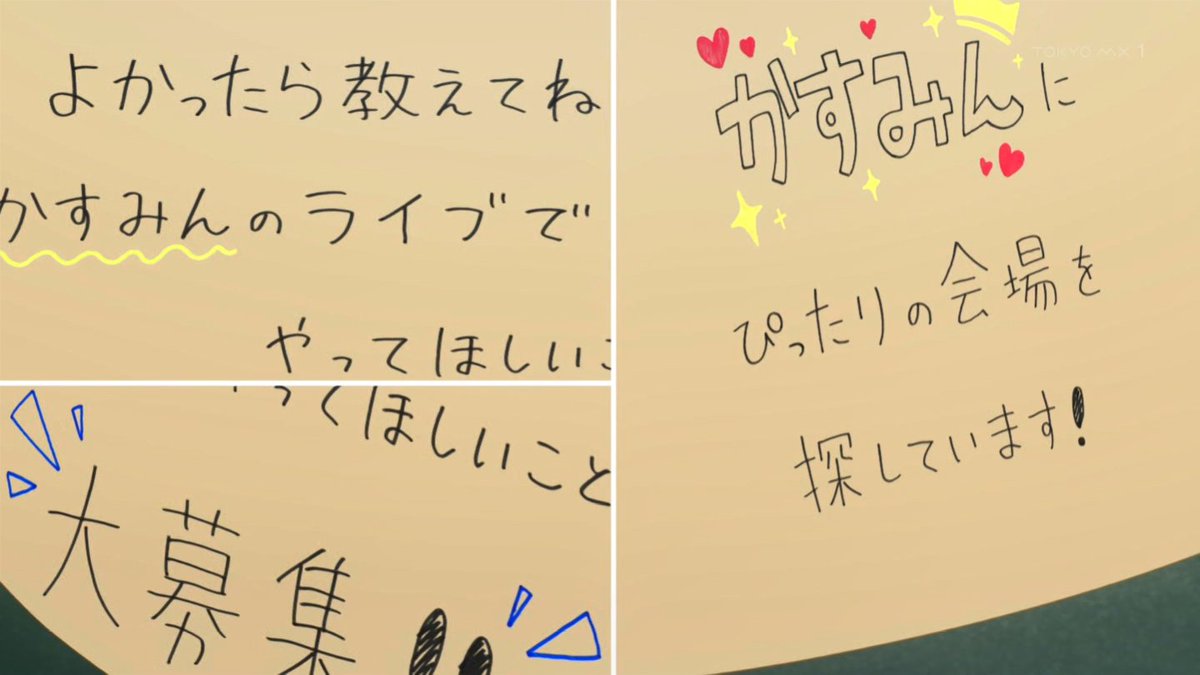 よかったら教えてね
かすみんのライブで
やってほしいこ
ってほしいこと
大募集!!
TOKYO MX 1
かすみんに
ぴったりの会場を
探しています!